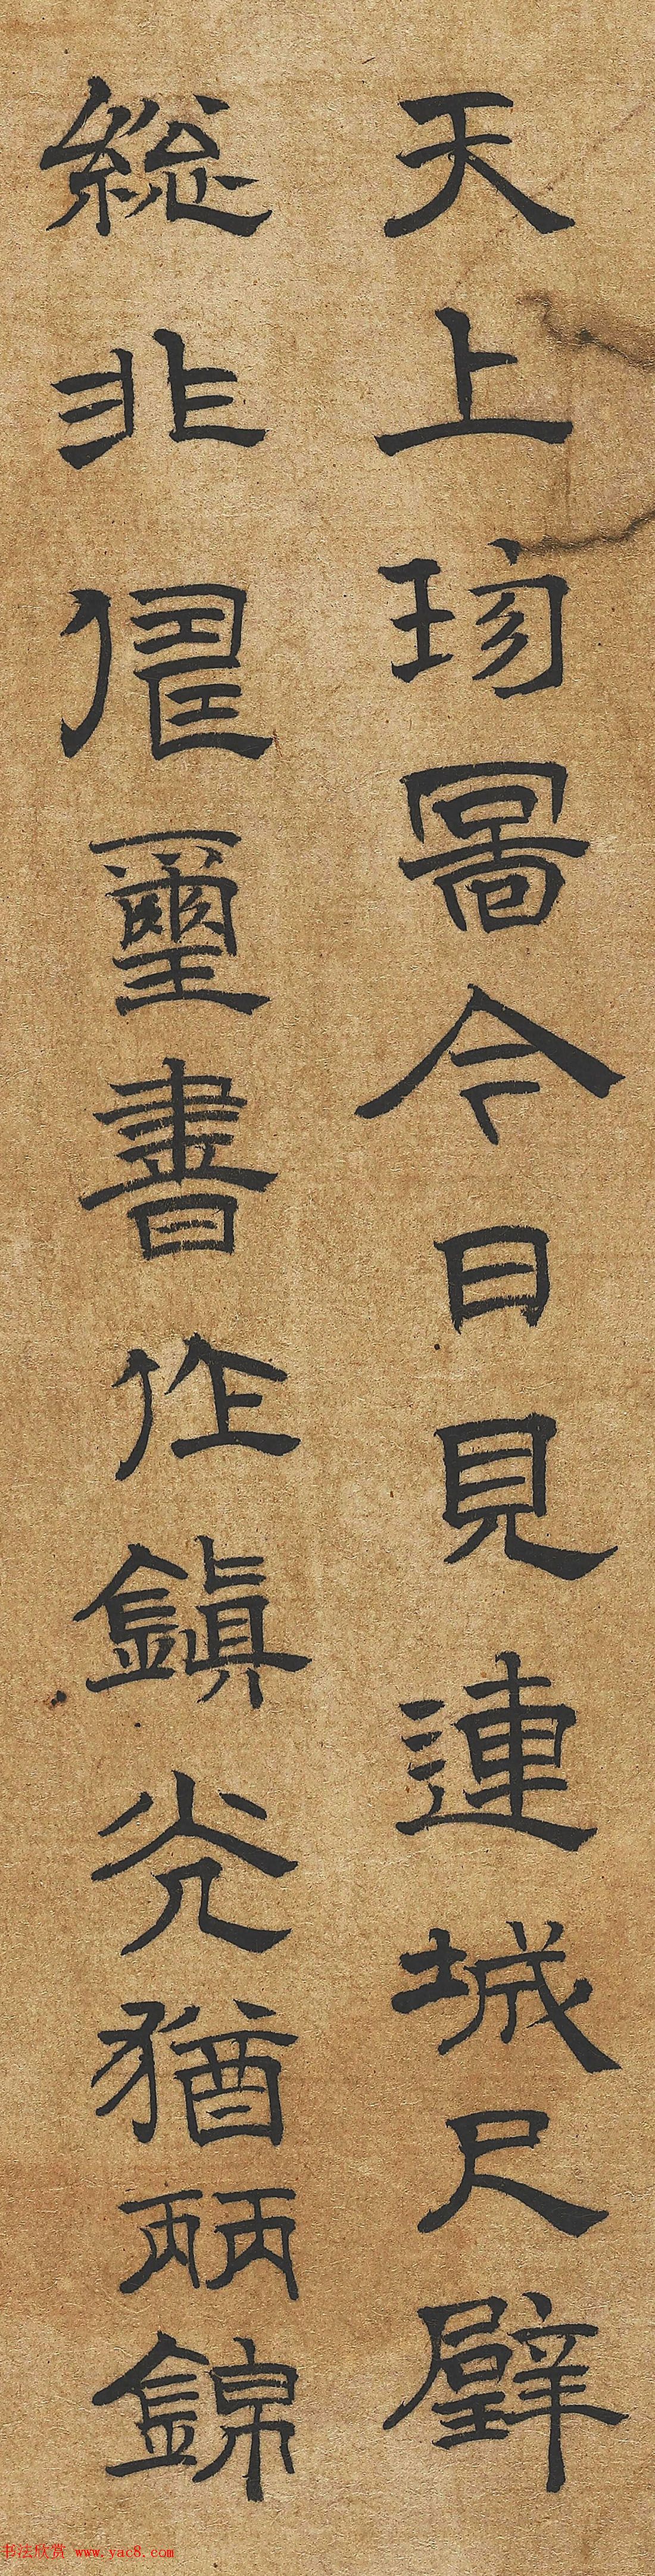 天上珎圖今日見連城尺璧
総非璽書作鎮光猶錦
书法欣赏 www.yac8.com